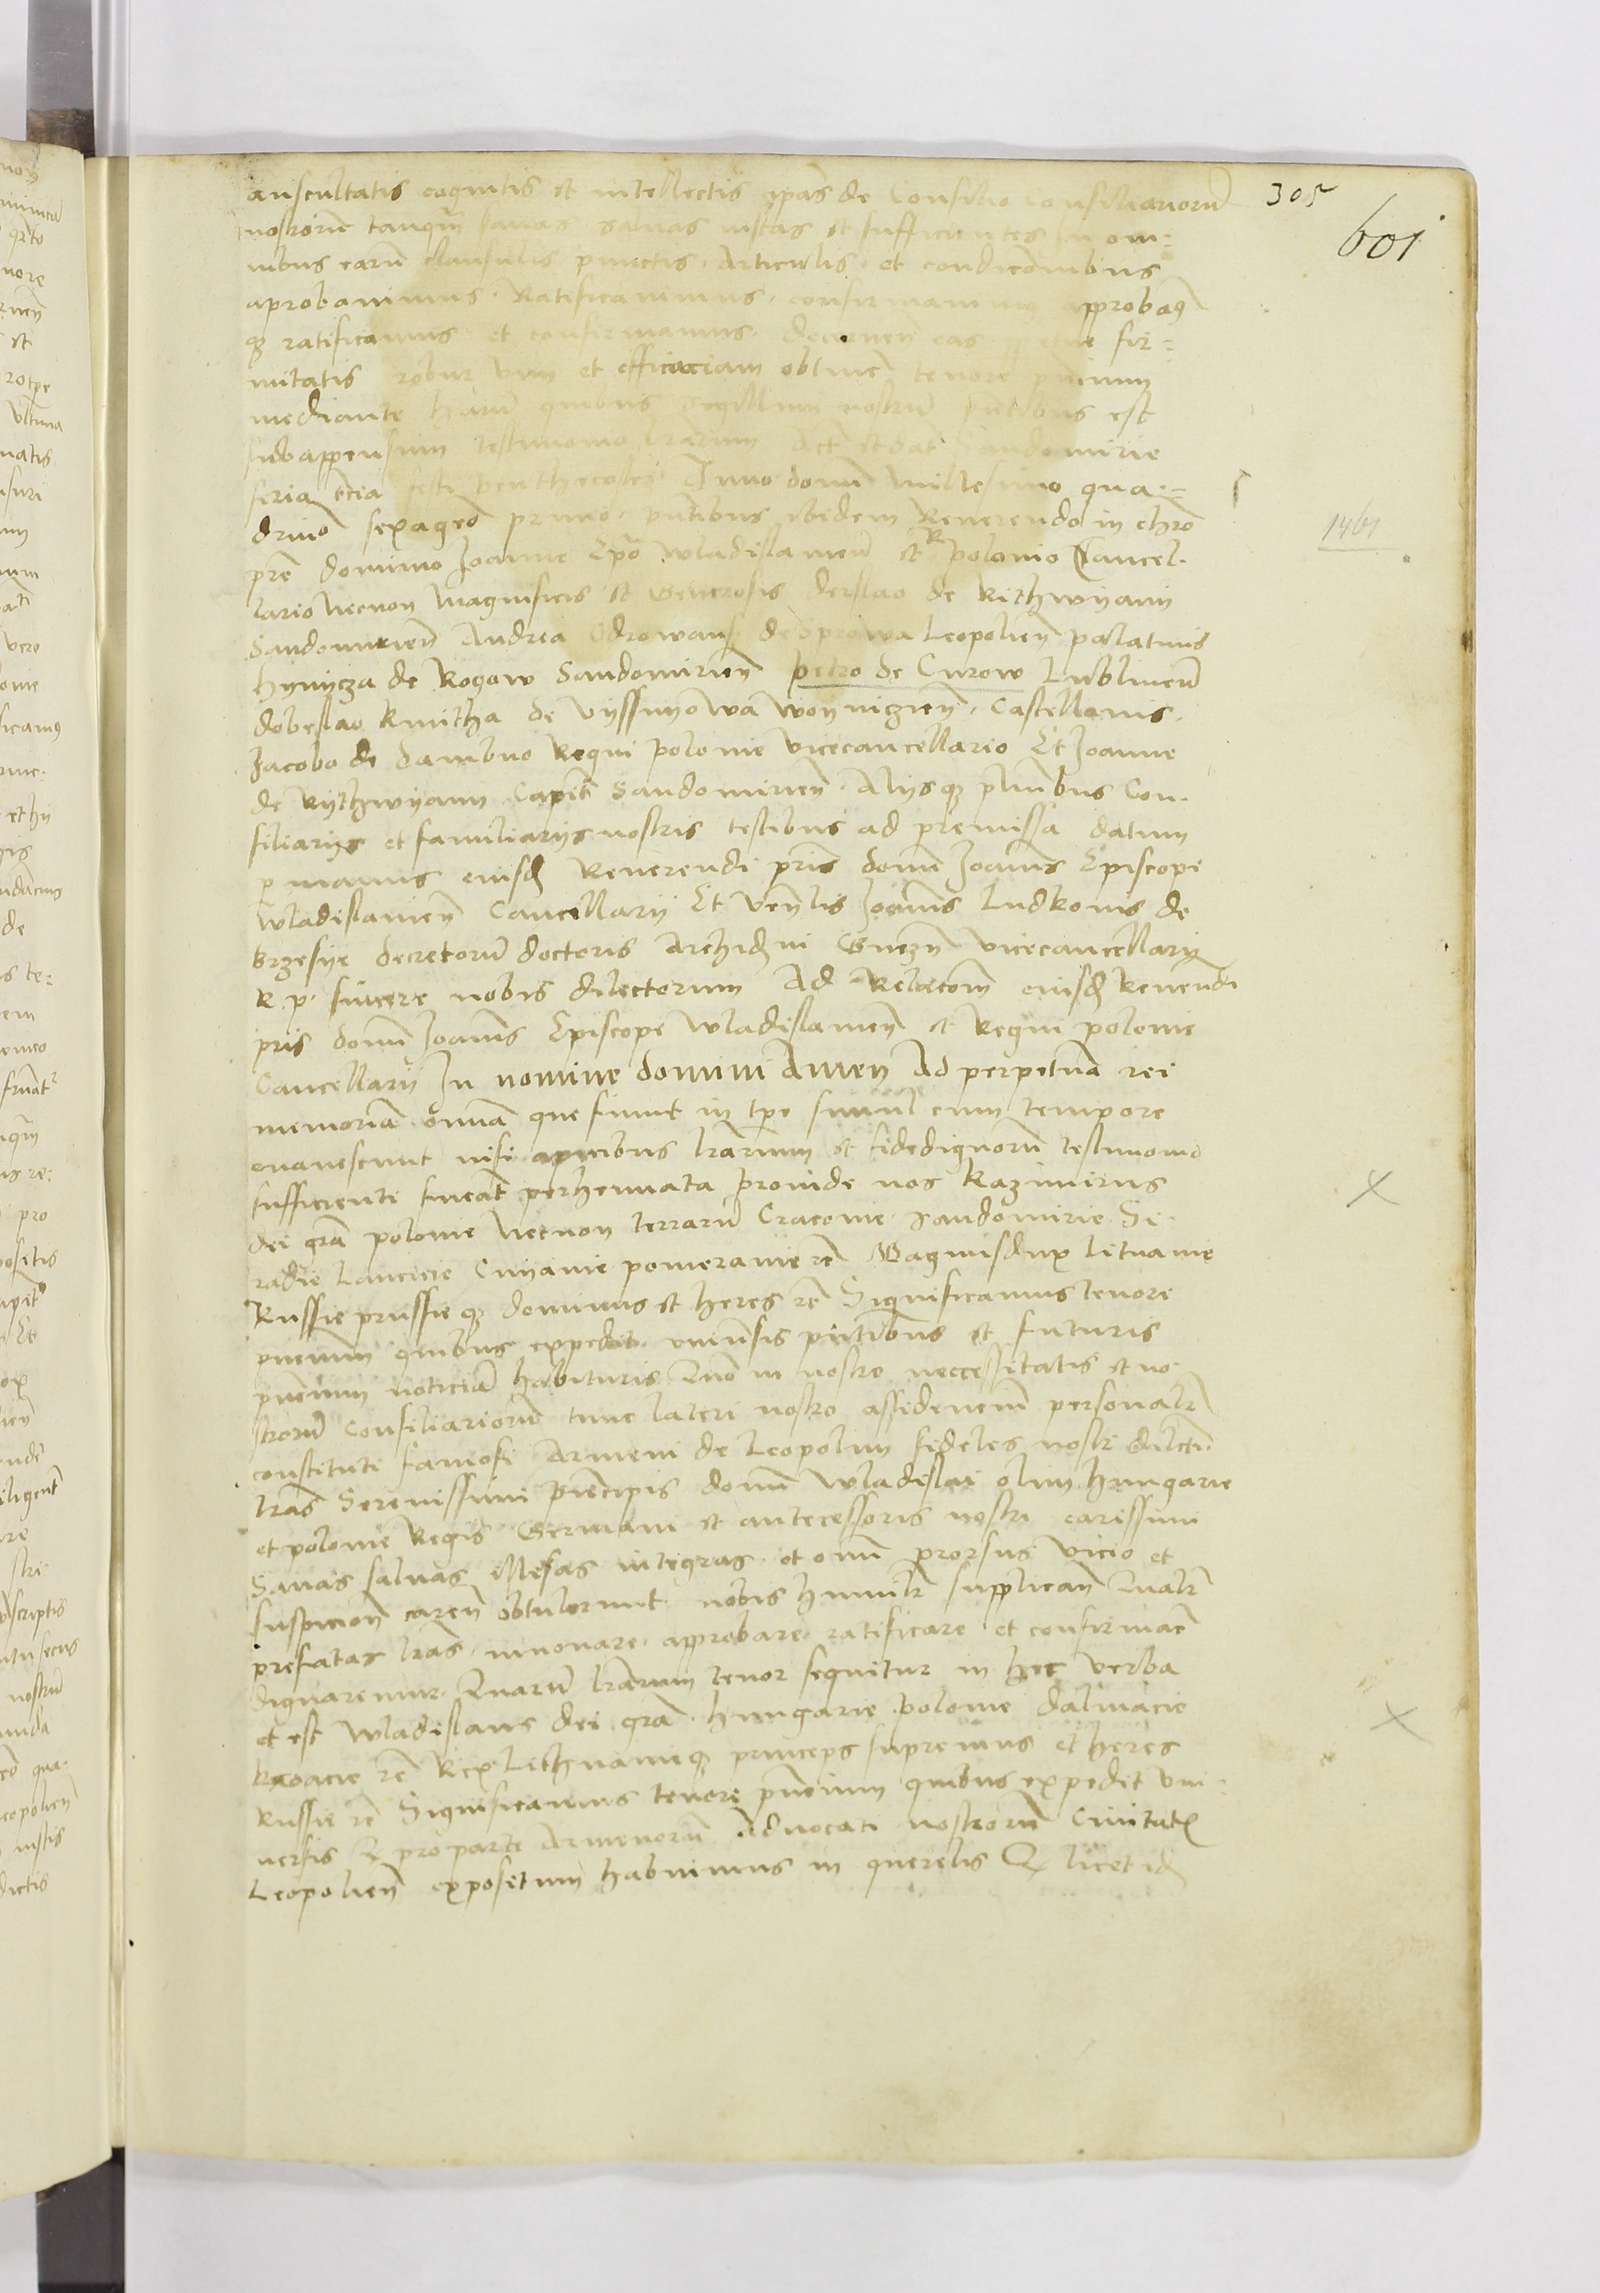 305
601
auscultatis cognitis et intellectis ipas de Consilio Consiliariorũ
nostrorũ tanquã sanas salvas iustas et sufficientes in om=
nibus earũ clausulis punctis Articulis et condicionibus
aprobavimus Ratificavimus confirmavimus approbaq
q3 ratificamus et confirmamus decernen eas fir=
mitatis robur vim et efficaciam obtinẽ tenore pñcium
mediante harũ quibus Sigillum nostrũ pñtibus est
subappensum testimonio lrarum Act et dat Sandomirie
feria tẽcia festi penthecostes Anno domĩ Millesimo qua=
dring sexageo primo pñtibus ibidem Reverendo in chro
1461
pre domino Joanne Epo wladislavieñ et R polonie Cancel-
lario Necnon Magnificis et Generosis derslao de Rithwyany
Sandomirieñ Andrea Odrowansz de Sprowa Leopolieñ palatinis
hynyza de Rogow Sandomirieñ petro de Curow Lublineñ
dobeslao kmitha de vyssnyowa woyniczieñ Castellanis
Jacobo de dambno Regni polonie vicecancellario Et Joanne
de Rythwyany Capitẽ Sandomirieñ Alysq3 plurĩbus Con-
siliariis et familiariis nostris testibus ad premissa datum
p manus eiusd Reverendi pris domi Joanis Episcopi
wladislavieñ Cancellarii Et Venlis Joanis Ludkonis de
brzesye decretorũ doctoris Archidni Gnezn vicecancellarii
R. p. sincere nobis dilectorum Ad Relacom eiusd Reverendi
pris domi Joanis Episcopi wladislavieñ et Regni polonie
Cancellarii In nomine domini Amen Ad perpetuã rei
memoriã omĩa que fiunt in tpe simul cum tempore
evanescunt nisi apicibus lrarum et fidedignorũ testimonio
sufficienti fueãt perhennata proinde nos Kazimirus
dei gra polonie Necnon terrarũ Cracovie Sandomirie Si-
radie Lancicie Cuyavie pomeranie rẽ Magnusdux Lituanie
Russie prussieq3 dominus et heres rẽ Significamus tenore
pñcium quibus expedit univĩsis pñtibus et futuris
pñcium noticiã habituris Quo in nostre neccessitatis et no-
strorũ Consiliariorũ tunc lateri nostro assidencĩũ personalr
constituti famosi Armeni de Leopolim fideles nostri dilcti
lras Serenissimi principis domi wladislai olim hungarie
et polonie Regis Germani et antecessoris nostri carissimi
Sanas salvas illesas integras et omĩ prorsus vicio et
suspicion careñ obtulerunt nobis humilr supplicañ Qualr
prefatas lras innovare approbare ratificare et confirmarẽ
dignaremur Quarũ lrarum tenor sequitur in hec verba
et est wladislaus dei gra hungarie polonie dalmacie
kroacie rẽ Rex Lithuanieq3 princeps supremus et heres
Russie rẽ Significamus tenore pñcium quibus expedit vni-
versis Q pro parte Armenorũ Advocati nostrorũ Civitatis
Leopolieñ expositum habuimus in querelis Q licet id